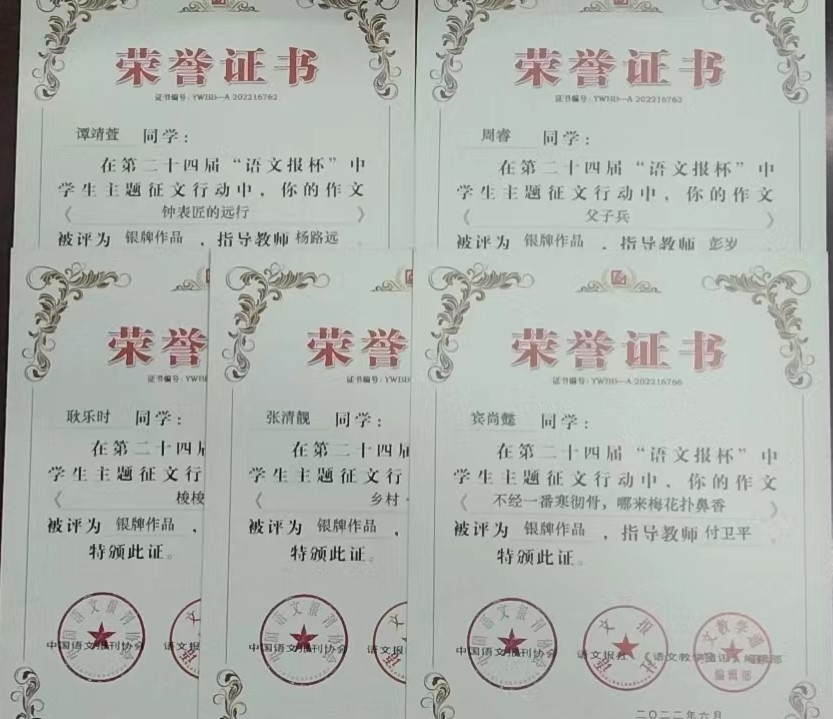 荣誉证书
证书编号：YWBD—A 202216762
谭靖萱 同学：
在第二十四届“语文报杯”中
学生主题征文行动中，你的作文
《 钟表匠的远行 》
被评为 银牌作品 ，指导教师 杨路远
荣誉证书
证书编号：YWBD—A 202216763
周睿 同学：
在第二十四届“语文报杯”中
学生主题征文行动中，你的作文
《 父子兵 》
被评为 银牌作品 ，指导教师 彭岁
荣誉
证书编号：YWB
耿乐时 同学：
在第二十四届
学生主题征文行
《 梭梭
被评为 银牌作品 ，
特颁此证。
中国语文报刊协会
荣誉
证书编号：YWBD
张清靓 同学：
在第二十四届
学生主题征文行
《 乡村
被评为 银牌作品 ，
特颁此证。
中国语文报刊协会 语文报
荣誉证书
证书编号：YWBD—A 202216766
宾尚懿 同学：
在第二十四届“语文报杯”中
学生主题征文行动中，你的作文
《 不经一番寒彻骨，哪来梅花扑鼻香 》
被评为 银牌作品 ，指导教师 付卫平
特颁此证。
中国语文报刊协会 语文报社 《语文教学通讯》编辑部
二〇二二年六月